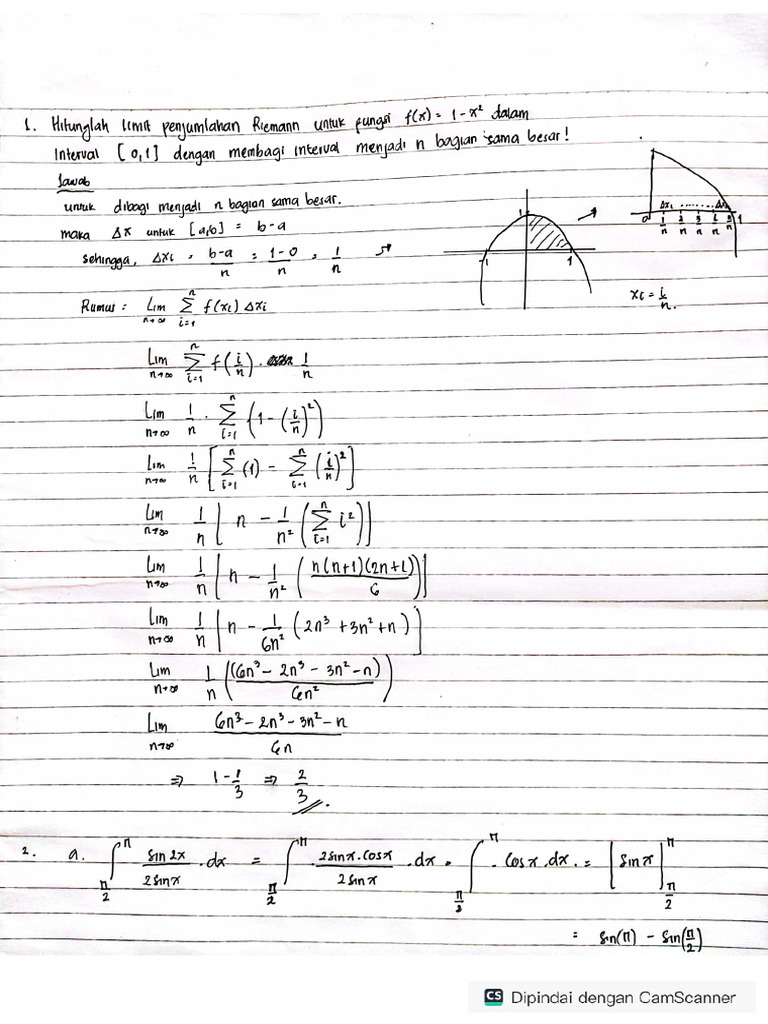 1. Hitunglah limit penjumlahan Riemann untuk fungsi f(x) = 1 - x² dalam
interval [0,1] dengan membagi interval menjadi n bagian sama besar!
Jawab
untuk dibagi menjadi n bagian sama besar.
maka Δx untuk [a,b] = b-a
sehingga, Δxi = (b-a)/n = (1-0)/n = 1/n
-1 1 1
0 Δx1 ........ Δxn 1
1/n 2/n 3/n i/n n/n
xi = i/n.
Rumus : Lim n→∞ Σ i=1 n f(xi) Δxi
Lim n→∞ Σ i=1 n f(i/n) . 1/n
Lim n→∞ 1/n . Σ i=1 n (1 - (i/n)²)
Lim n→∞ 1/n [Σ i=1 n (1) - Σ i=1 n (i/n)²]
Lim n→∞ 1/n [n - 1/n² (Σ i=1 n i²)]
Lim n→∞ 1/n [n - 1/n² (n(n+1)(2n+1)/6)]
Lim n→∞ 1/n [n - 1/6n² (2n³ + 3n² + n)]
Lim n→∞ 1/n ((6n³ - 2n³ - 3n² - n)/6n²)
Lim n→∞ (6n³ - 2n³ - 3n² - n)/6n
⇒ 1 - 1/3 ⇒ 2/3 .
2. a. ∫ π/2 π sin 2x/2 sin x . dx = ∫ π/2 π 2 sin x . cos x/2 sin x . dx = ∫ π/2 π . cos x . dx . = [sin x] π/2 π
= sin(π) - sin(π/2)
CS Dipindai dengan CamScanner